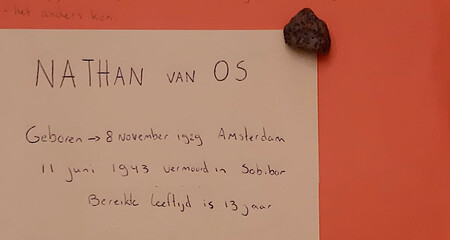 - het anders kon.
NATHAN VAN OS
Geboren → 8 November 1929 Amsterdam
11 juni 1943 vermoord in Sobibor
Bereikte leeftijd is 13 jaar